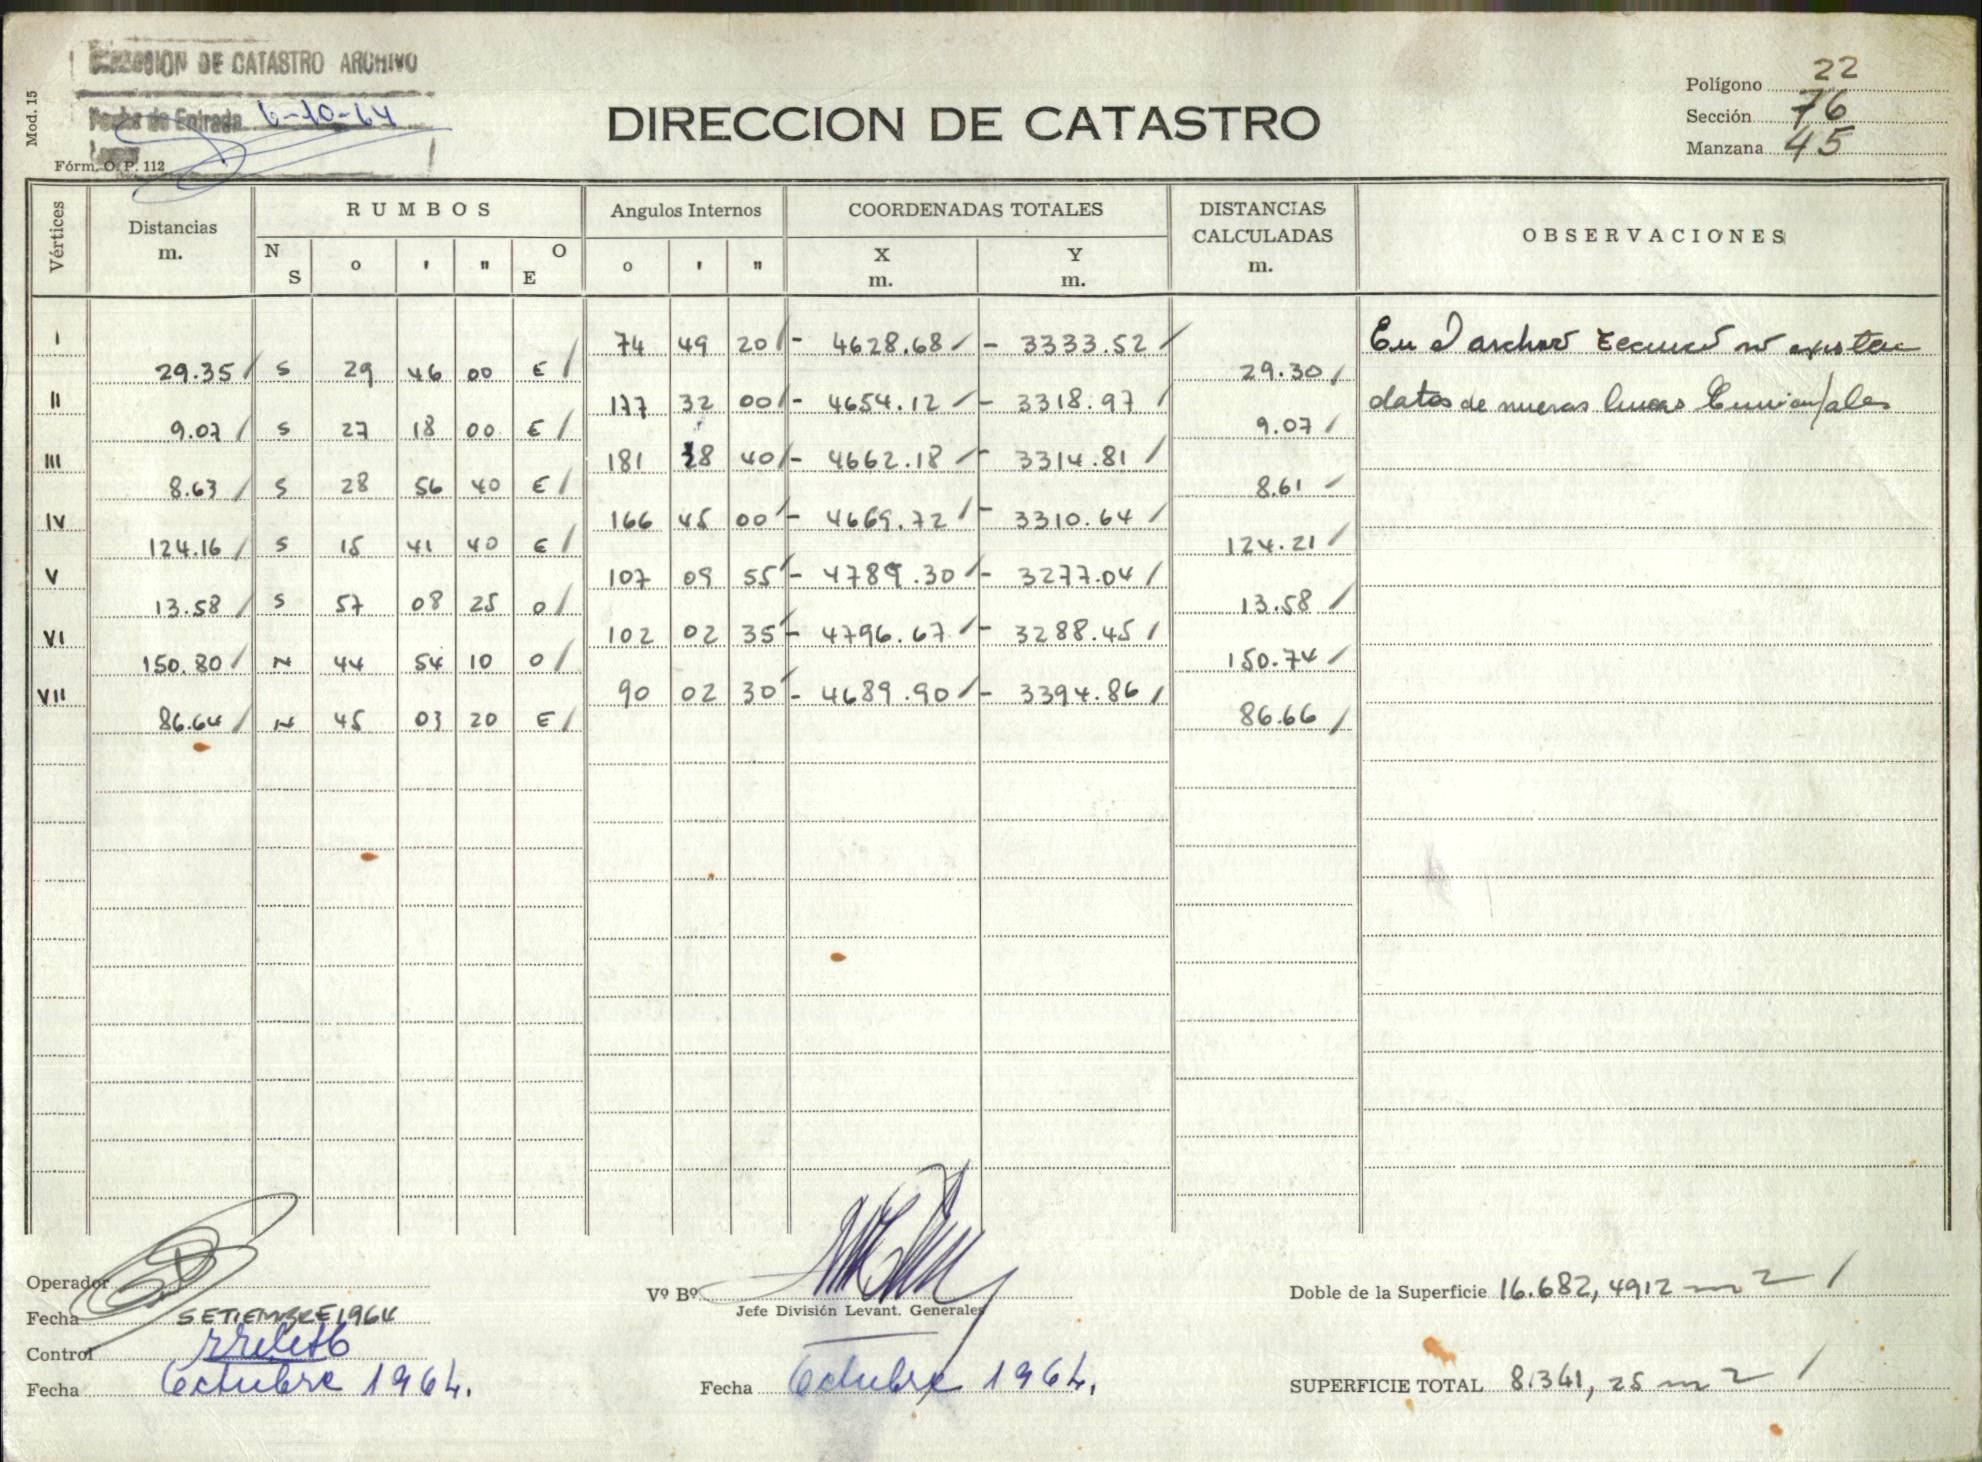 DIRECCION DE CATASTRO ARCHIVO
Fecha de Entrada 6-10-64
Mod. 15
Fórm. O. P. 112
DIRECCION DE CATASTRO
Polígono 22
Sección 76
Manzana 45
Vértices
Distancias m.
RUMBOS
N S o ' " O E
Angulos Internos
o ' "
COORDENADAS TOTALES
X m. Y m.
DISTANCIAS CALCULADAS m.
OBSERVACIONES
I 74 49 20 - 4628.68 - 3333.52
29.35 S 29 46 00 E 29.30
II 177 32 00 - 4654.12 - 3318.97
9.07 S 27 18 00 E 9.07
III 181 38 40 - 4662.18 - 3314.81
8.63 S 28 56 40 E 8.61
IV 166 45 00 - 4669.72 - 3310.64
124.16 S 15 41 40 E 124.21
V 107 09 55 - 4789.30 - 3277.04
13.58 S 57 08 25 O 13.58
VI 102 02 35 - 4796.67 - 3288.45
150.80 N 44 54 10 O 150.74
VII 90 02 30 - 4689.90 - 3394.86
86.64 N 45 03 20 E 86.66
En el archivo no existen
datos de nuevas lineas
Operador
Fecha SETIEMBRE 1964
Control
Fecha Octubre 1964.
Vº Bº
Jefe División Levant. Generales
Fecha Octubre 1964.
Doble de la Superficie 16.682,4912 m2
SUPERFICIE TOTAL 8.341,25 m2